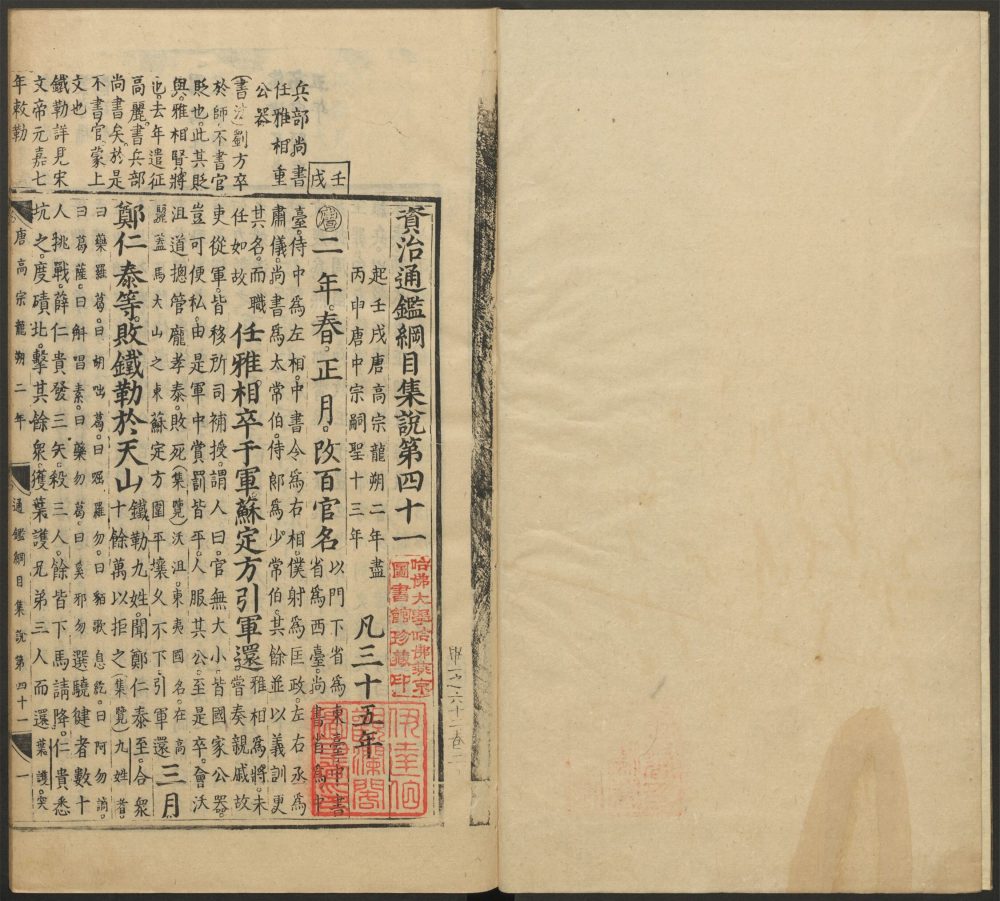 資治通鑑綱目集說第四十一
起壬戌唐高宗龍朔二年盡
丙申唐中宗嗣聖十三年
凡三十五年
二年。春。正月。改百官名
以門下省為東臺。中書
省為西臺。尚書省為中
臺。侍中為左相。中書令為右相。僕射為匡政。左右丞為
肅儀。尚書為太常伯。侍郎為少常伯。其餘並以義訓更
其名。而職
任如故
任雅相卒于軍蘇定方引軍還
雅相為將。未
嘗奏親戚故
吏從軍。皆移所司補授。謂人曰。官無大小。皆國家公器。
豈可便私。由是軍中賞罰皆平。人服其公。至是卒。會沃
沮道摠管龐孝泰。敗死
(集覽)沃沮。東夷國名。在高
麗蓋馬大山之東
蘇定方圍平壤久不下。引軍還
三月
鄭仁泰等。敗鐵勒於天山
鐵勒九姓。聞鄭仁泰至。合衆
十餘萬以拒之
(集覽)九姓者。
曰藥羅葛。曰胡咄葛。曰啒羅勿。曰貊歌息訖。曰阿勿嘀。
曰葛薩。曰斛嗢素。曰藥勿葛。曰奚邪勿
選驍健者數十
人挑戰。薛仁貴發三矢。殺三人。餘皆下馬請降。仁貴悉
坑之。度磧北。擊其餘衆。獲葉護兄弟三人而還
葉護。突
唐高宗龍朔二年
通鑑綱目集說第四十一
一
壬戌
兵部尚書
任雅相重
公器
(書法)劉方卒
於師。不書官
貶也。此其貶
與。雅相賢將
也。去年遣征
高麗。書兵部
尚書矣。於是
不書官。蒙上
文也
鐵勒詳見宋
文帝元嘉七
年敕勒
哈佛大學哈佛燕京
圖書館珍藏印